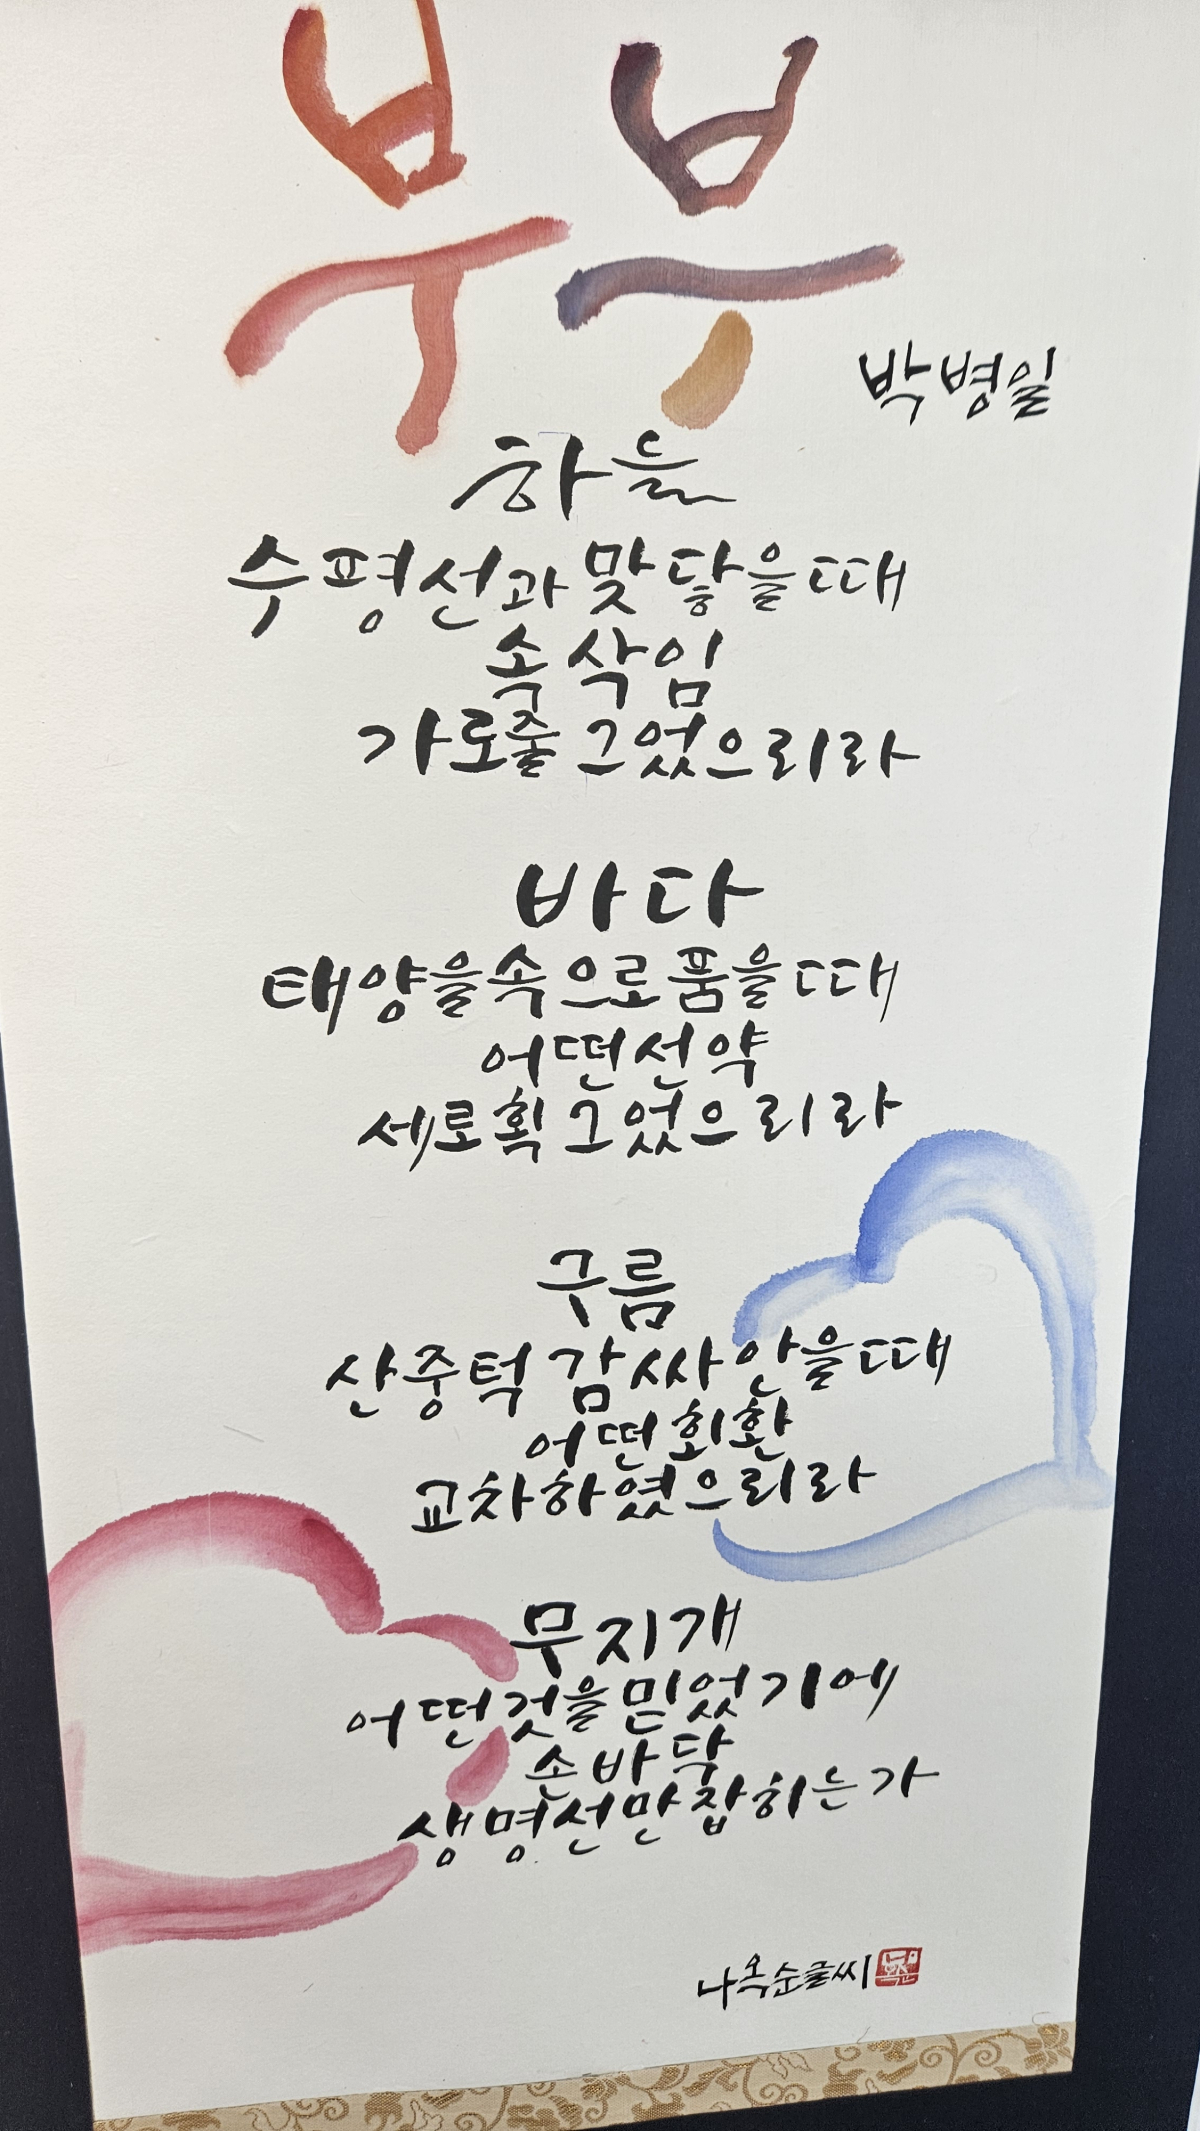 부부
박병일
하늘
수평선과 맞닿을때
속삭임
가로줄 그었으리라
바다
태양을속으로품을때
어떤선약
세로획그었으리라
구름
산중턱 감싸안을때
어떤회환
교차하였으리라
무지개
어떤것을믿었기에
손바닥
생명선만잡히는가
나옥순글씨